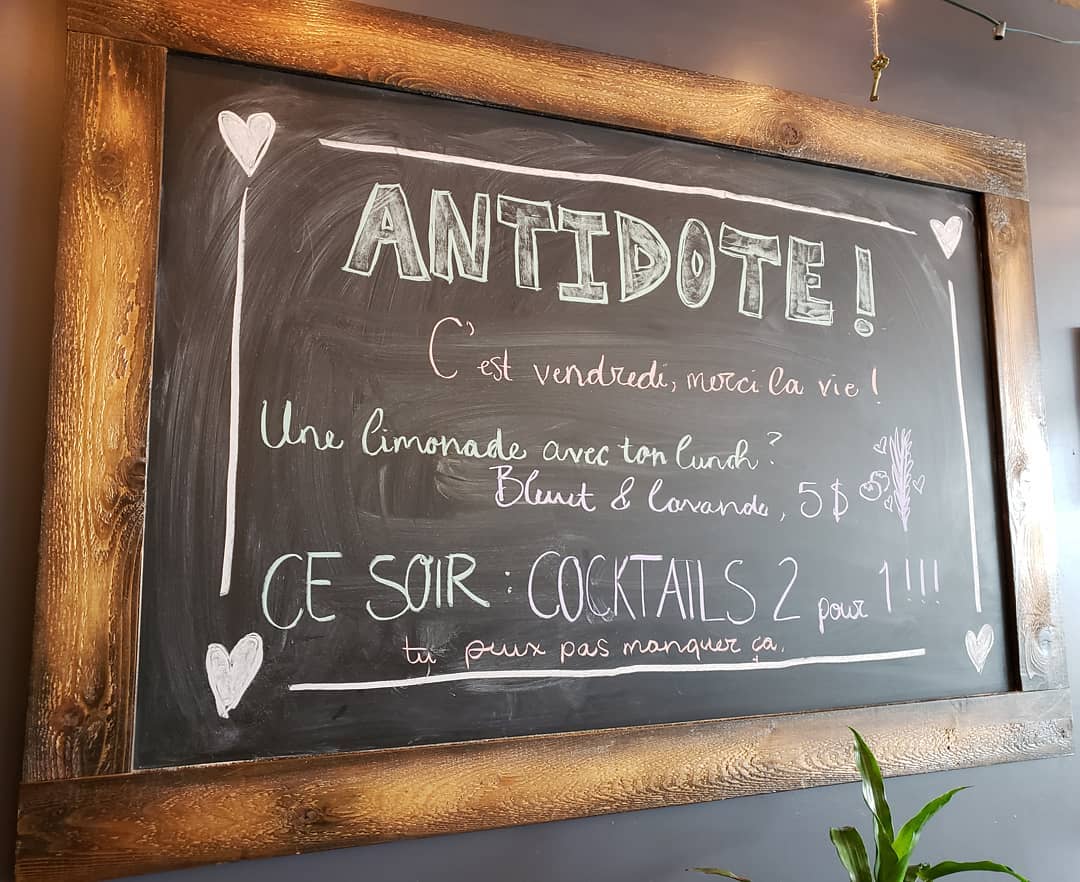 ANTIDOTE!
C'est vendredi, merci la vie!
Une limonade avec ton lunch?
Bleuet & lavande, 5$
CE SOIR: COCKTAILS 2 pour 1!!!
tu peux pas manquer ça.